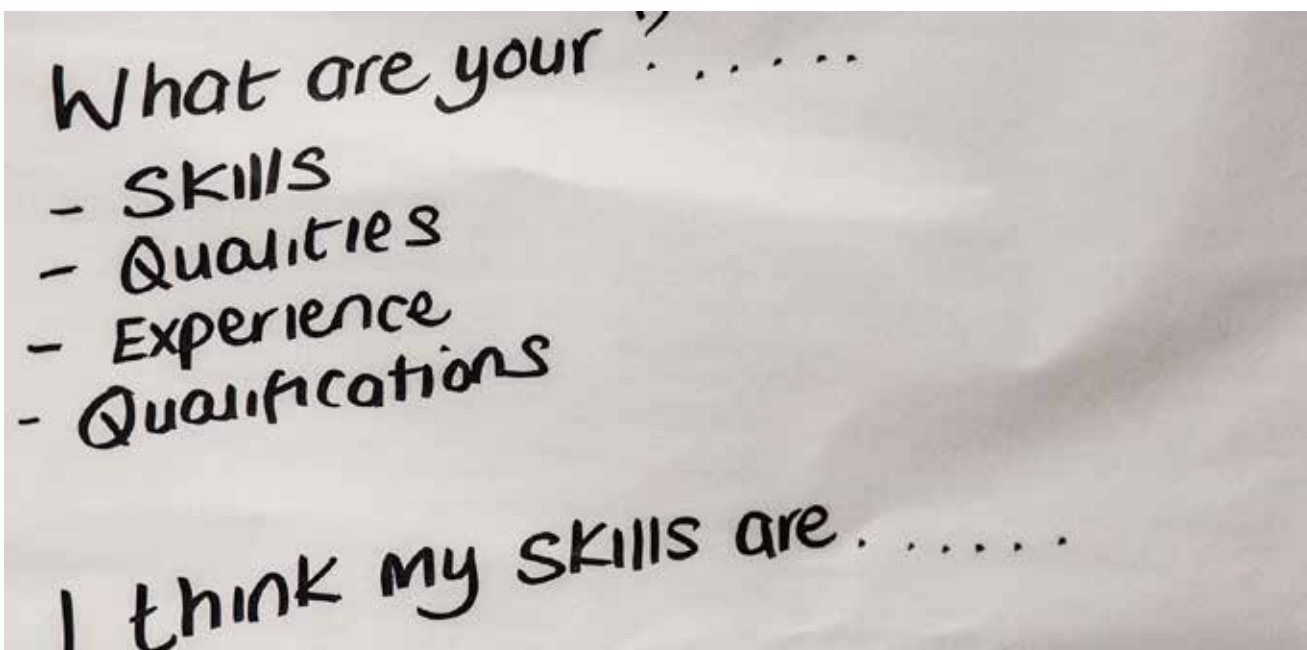 What are your ? . . . . .
- Skills
- Qualities
- Experience
- Qualifications
I think my skills are . . . . . .